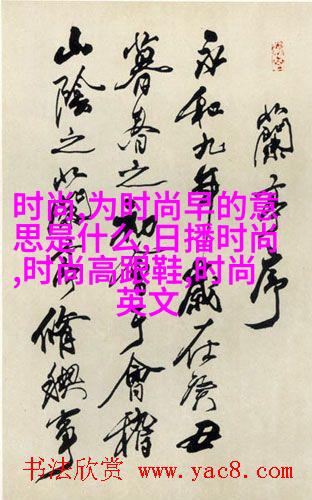 蘭亭序
永和九年歲在癸丑
暮春之初會于會稽
山陰之蘭亭脩禊事
时尚,为时尚早的意
思是什么,日播时尚
,时尚高跟鞋,时尚
英文
书法欣赏 www.yac8.com